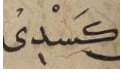 كَسْدِىْ